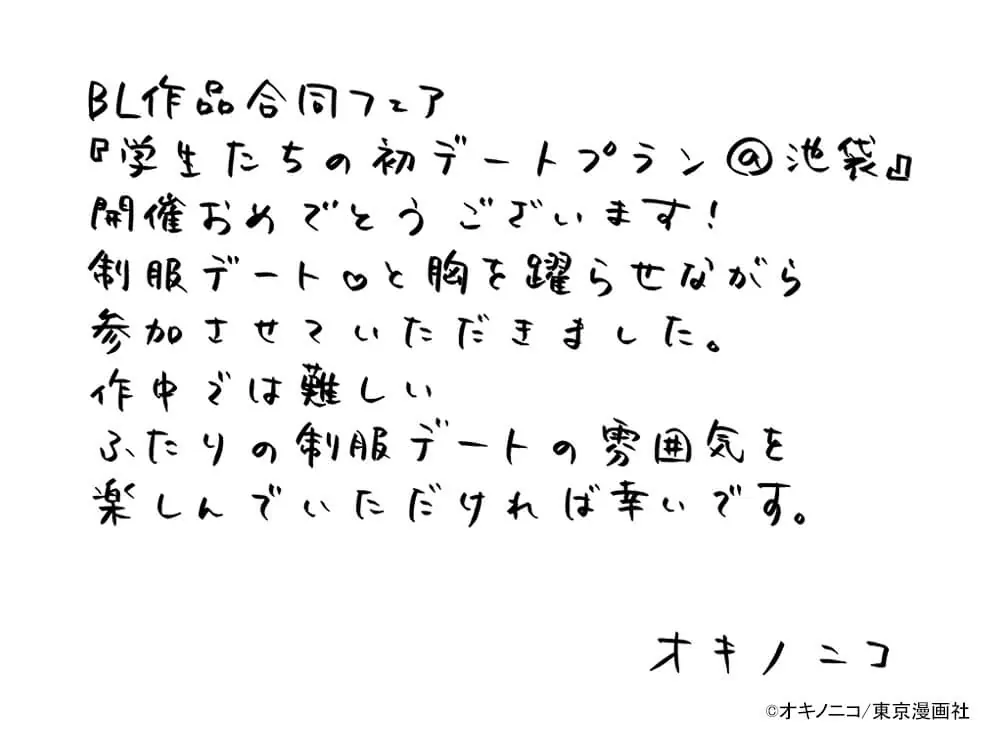 BL作品合同フェア
『学生たちの初デートプラン@池袋』
開催おめでとうございます!
制服デート♡と胸を躍らせながら
参加させていただきました。
作中では難しい
ふたりの制服デートの雰囲気を
楽しんでいただければ幸いです。
オキノニコ
©オキノニコ/東京漫画社